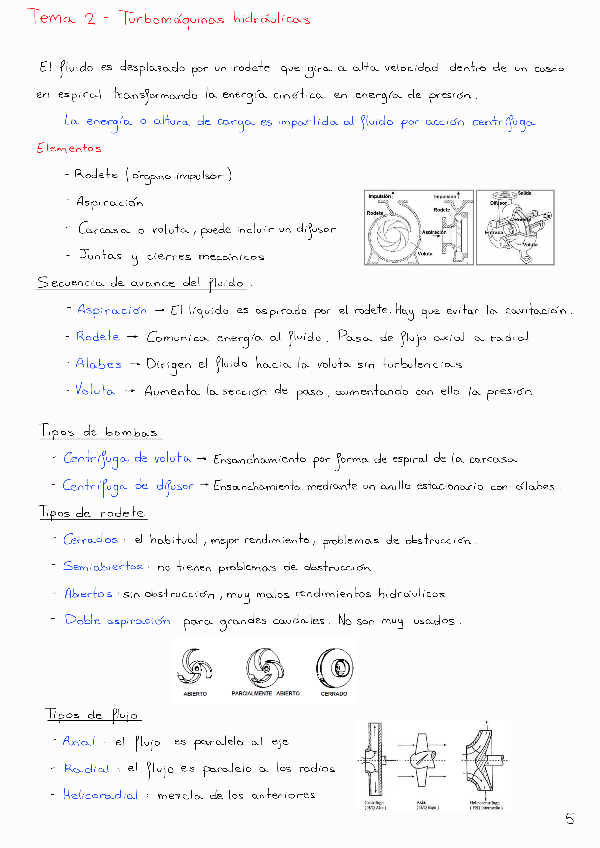 Tema 2 - Turbomáquinas hidráulicas
El fluido es desplazado por un rodete que gira a alta velocidad dentro de un casco
en espiral transformando la energía cinética en energía de presión.
La energía o altura de carga es impartida al fluido por acción centrífuga
Elementos
- Rodete (órgano impulsor)
- Aspiración
- Carcasa o voluta, puede incluir un difusor
- Juntas y cierres mecánicos
Impulsión
Rodete
Voluta
Impulsión
Rodete
Aspiración
Salida
Difusor
Rodete
Entrada
Voluta
Secuencia de avance del fluido.
- Aspiración → El líquido es aspirado por el rodete. Hay que evitar la cavitación.
- Rodete → Comunica energía al fluido. Pasa de flujo axial a radial
- Alabes → Dirigen el fluido hacia la voluta sin turbulencias
- Voluta → Aumenta la sección de paso, aumentando con ello la presión
Tipos de bombas
- Centrífuga de voluta → Ensanchamiento por forma de espiral de la carcasa
- Centrífuga de difusor → Ensanchamiento mediante un anillo estacionario con álabes.
Tipos de rodete
- Cerrados: el habitual, mejor rendimiento, problemas de obstrucción.
- Semiabiertos: no tienen problemas de obstrucción
- Abiertos: sin obstrucción, muy malos rendimientos hidráulicos
- Doble aspiración para grandes caudales. No son muy usados.
ABIERTO PARCIALMENTE ABIERTO CERRADO
Tipos de flujo
- Axial: el flujo es paralelo al eje
- Radial: el flujo es paralelo a los radios
- Helicoradial: mezcla de los anteriores
Centrífugo
(H/Q Alto)
Axial
(H/Q Bajo)
Helicocentrífugo
(H/Q Intermedio)
5